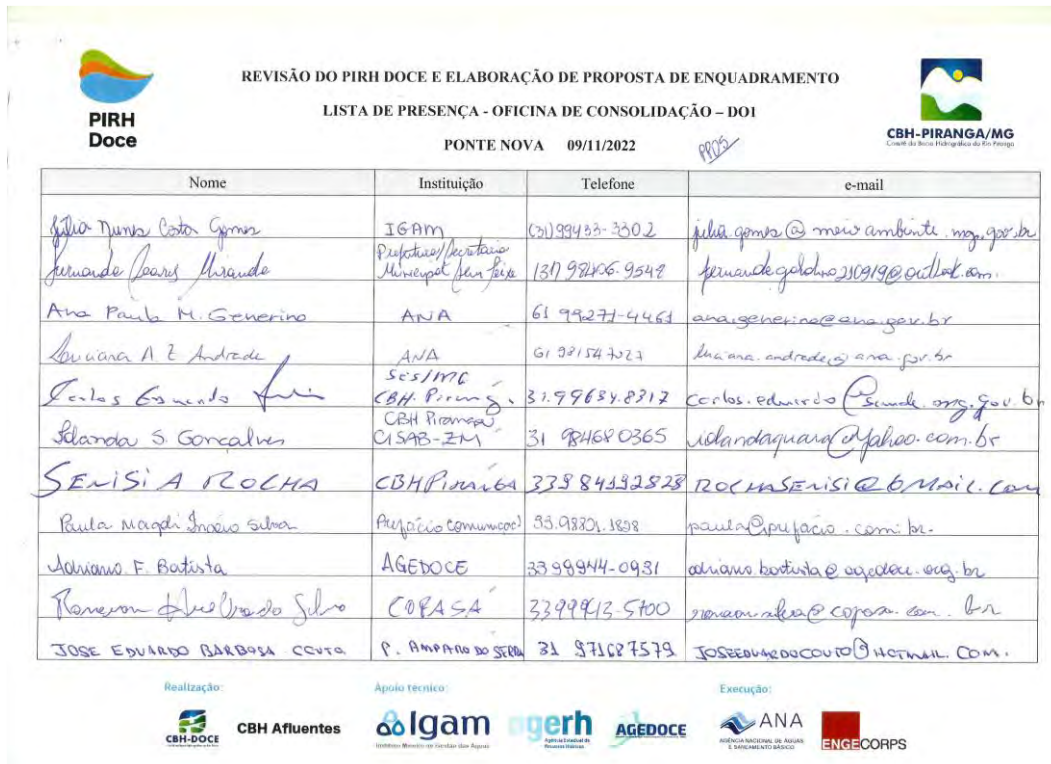 REVISÃO DO PIRH DOCE E ELABORAÇÃO DE PROPOSTA DE ENQUADRAMENTO
LISTA DE PRESENÇA - OFICINA DE CONSOLIDAÇÃO – DO1
PIRH
Doce
PONTE NOVA 09/11/2022
CBH-PIRANGA/MG
Comitê da Bacia Hidrográfica do Rio Piranga
Nome Instituição Telefone e-mail
Júlia Nunes Costa Gomes IGAM (31)99433-3302 julia.gomes@meioambiente.mg.gov.br
Fernanda Miranda Prefeitura/Secretaria
Municipal (31) 98406-9548
Ana Paula M. Generino ANA 61 99271-4461 ana.generino@ana.gov.br
Luciana A Z Andrade ANA 61 981547027 luciana.andrade@ana.gov.br
Carlos Eduardo SES/MG
CBH. Piranga. 31.99634.8317 carlos.eduardo@saude.mg.gov.br
Iolanda S. Gonçalves CBH Piranga
CISAB-ZM 31 984680365 iolandaquara@yahoo.com.br
SENISI A ROCHA CBH PIRANGA 33984192828 ROCHASENISI@GMAIL.COM
Paula Magdi Inácio Silva Prefácio comunicação 33.98821.1828 paula@prefacio.com.br.
Adriano F. Batista AGEDOCE 3398944-0931 adriano.batista@agedoce.org.br
Silva COPASA 3399913-5700
JOSE EDUARDO BARBOSA COUTO P. AMPARO DO SERRA 31 971687579 JOSEEDUARDOCOUTO@HOTMAIL.COM.
Realização: Apoio técnico: Execução:
CBH-DOCE CBH Afluentes Igam agerh AGEDOCE ANA ENGECORPS
Instituto Mineiro de Gestão das Águas
AGÊNCIA NACIONAL DE ÁGUAS
E SANEAMENTO BÁSICO